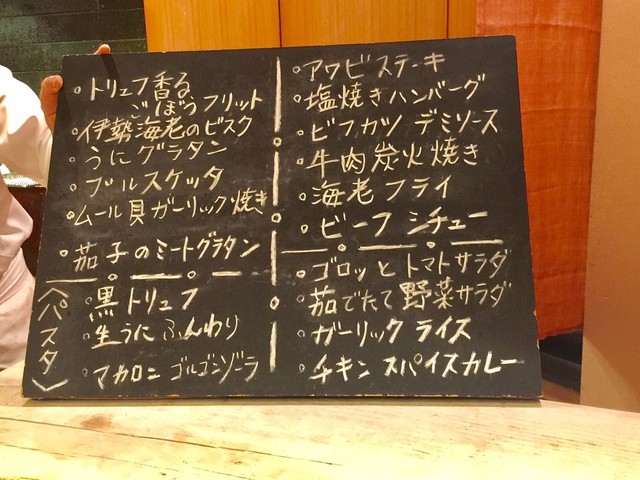 トリュフ香る、
ごぼうフリット
伊勢海老のビスク
うにグラタン
ブルスケッタ
ムール貝ガーリック焼き
茄子のミートグラタン
〈パスタ〉
黒トリュフ
生うにふんわり
マカロニ ゴルゴンゾーラ
アワビステーキ
塩焼きハンバーグ
ビフカツ デミソース
牛肉炭火焼き
海老フライ
ビーフシチュー
ゴロッとトマトサラダ
茹でたて野菜サラダ
ガーリックライス
チキンスパイスカレー